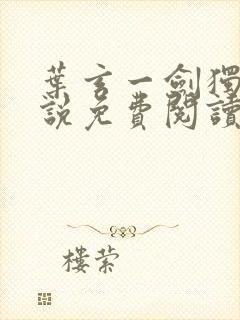 葉玄一劍獨
說免費閱讀
樓縈